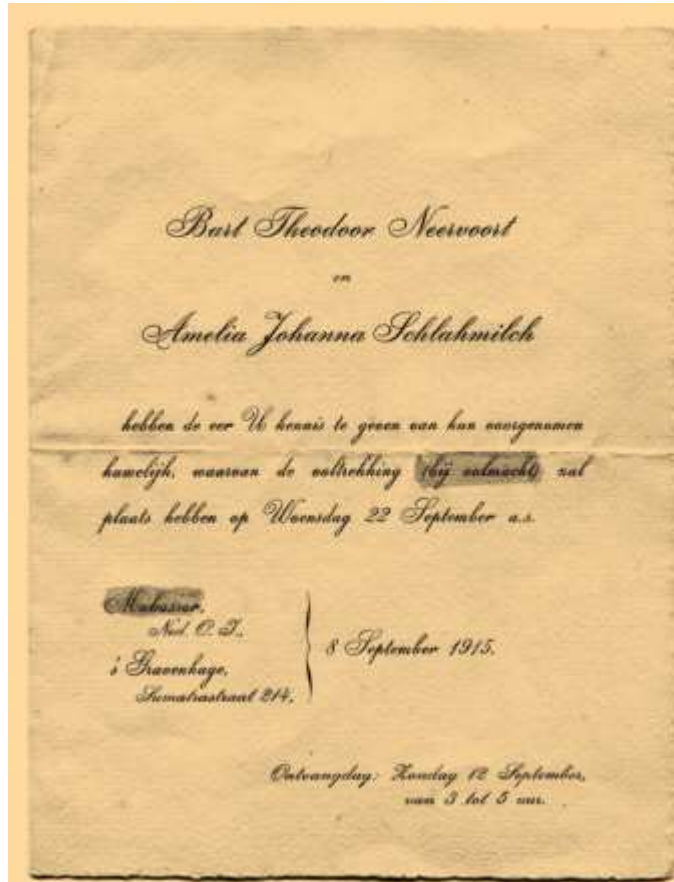 Bart Theodoor Neervoort
en
Amelia Johanna Schlahmilch
hebben de eer U kennis te geven van hun voorgenomen
huwelijk, waarvan de voltrekking (bij volmacht) zal
plaats hebben op Woensdag 22 September a.s.
Makassar,
Ned. O. I.,
's Gravenhage,
Sumatrastraat 214,
8 September 1915.
Ontvangdag: Zondag 12 September,
van 3 tot 5 uur.